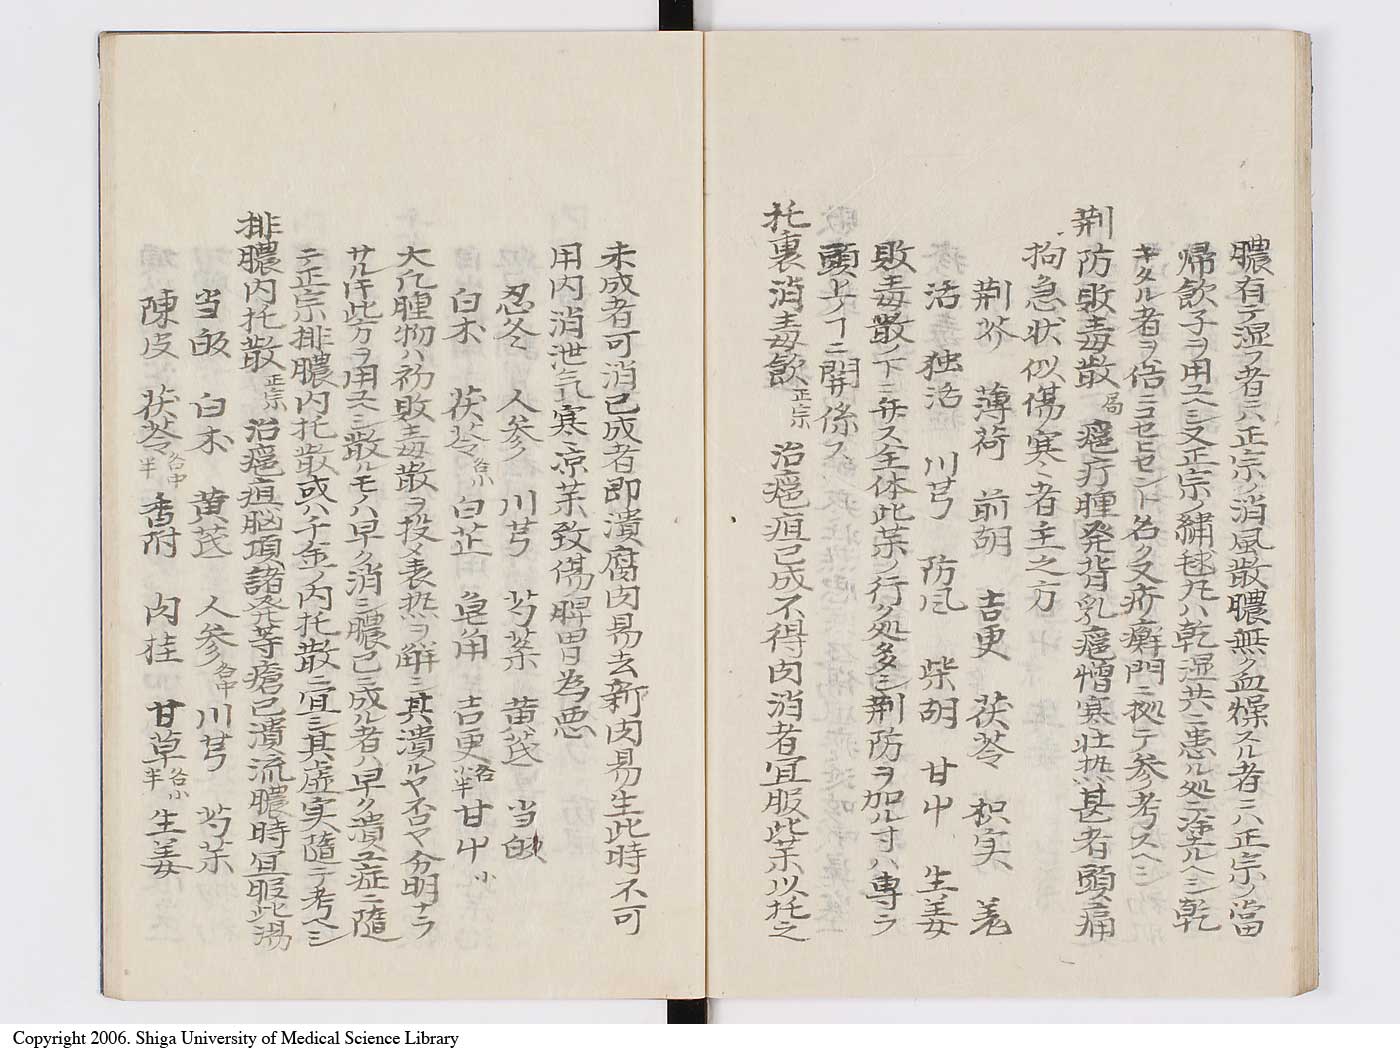 膿有テ湿フ者ニハ正宗ノ消風散膿無ク血燥スル者ニハ正宗ノ當
帰飲子ヲ用ユヘシ又正宗ノ繍毬丸ハ乾湿共ニ患ル処ニ塗ルヘシ乾
キタル者ヲ倍ニコセヒセント名ク又疥癬門ニ拠テ参考スヘシ
荆防敗毒散局 癰疔腫発背乳癰憎寒壮热甚者頭痛
拘急状似傷寒者主之方
荆芥 薄荷 前胡 吉更 茯苓 枳实 羌
活 独活 川芎 防风 柴胡 甘中 生姜
敗毒散ノ下ニ弁ス全体此薬ノ行ク処多シ荆防ヲ加ル寸ハ専ラ
頭上ノヿニ関係ス
托裏消毒飲正宗 治癰疽已成不得内消者宜服此薬以托之
未成者可消已成者即潰腐肉易去新肉易生此時不可
用内消泄气寒凉薬致傷脾胃為悪
忍冬 人参 川芎 芍薬 黄芪 当皈
白朮 茯苓各小 白芷 皂角 吉更各小半 甘中小
大凡腫物ハ初敗毒散ヲ投メ表热ヲ解シ其潰ルヤ否ヤマタ分明ナラ
サル寸此方ヲ用ユヘシ散ルモノハ早ク消シ膿已ニ成ル者ハ早ク潰ユ症ニ随
テ正宗排膿内托散或ハ千金ノ内托散ニ宜シ其虚実随テ考ヘシ
排膿内托散正宗 治癰疽脳項諸発等瘡已潰流膿時宜服此湯
当皈 白朮 黄芪 人参各中 川芎 芍薬
陳皮 茯苓各中半 香附 肉桂 甘草各小半 生姜
Copyright 2006. Shiga University of Medical Science Library